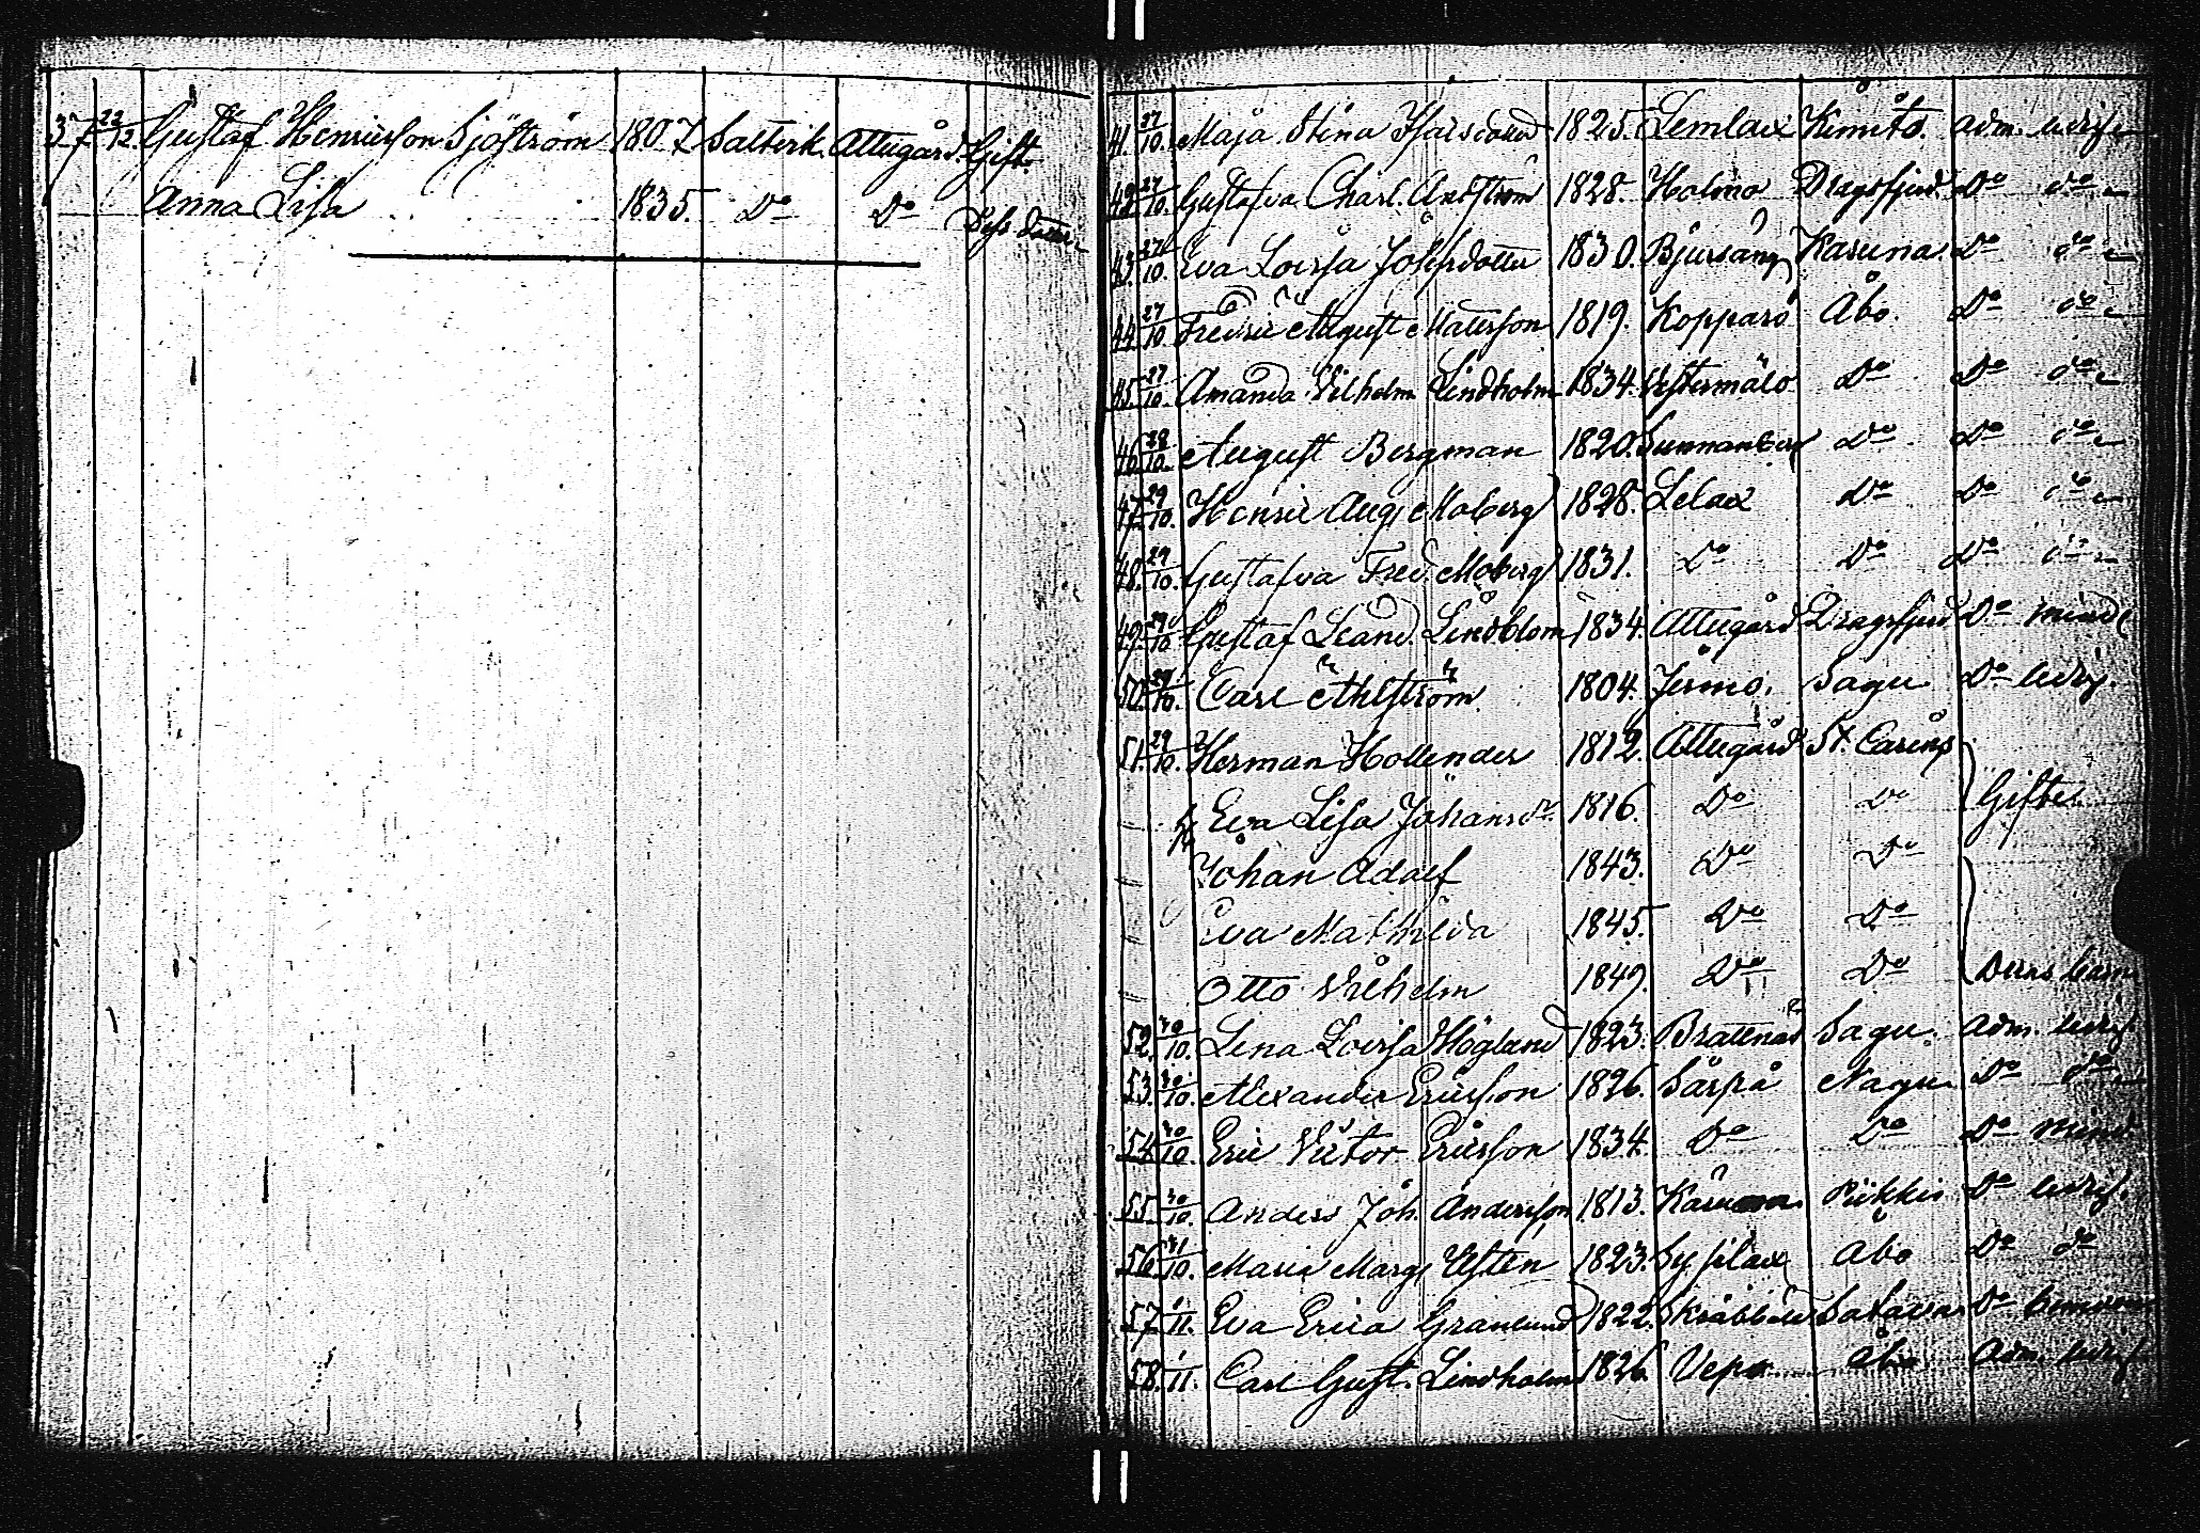 37. 22/12. Gustaf Henricsson Sjöström 1807 Saltvik. Attugård. Gift.
Anna Lisa 1835. Do Do
41. 27/10. Maja Stina 1825. Lemlax Kimito. Adm. ledig
42. 27/10. Gustafva Charl. 1828. Holmo Dragsfjerd Do do
43. 27/10. Eva Lovisa Josefsdotter 1830. Karuna. Do do
44. 27/10. Fredric August Mattsson 1819. Kopparö Åbo. Do do
45. 27/10. Amanda Vilhelm. Lindholm 1834. Do Do do
46. 28/10. August Bergman 1820. Sunnanberg Do Do do
47. 29/10. Henric Aug. Moberg 1828. Lelax Do Do do
48. 29/10. Gustafva Fred. Moberg 1831. Do Do Do do
49. 29/10. Gustaf Leand. Lindblom 1834. Attugård Dragsfjerd Do mind.
50. 29/10. Carl Ahlström 1804. Jermo. Sagu Do ledig.
51. 29/10. Herman Hollender 1812. Attugård St. Carins
Eva Lisa Johansdr 1816. Do Do Gifte.
Johan Adolf 1843. Do Do
Eva Mathilda 1845. Do Do
Otto Vilhelm 1849. Do Do Deras barn
52. 30/10. Lena Lovisa Höglund 1823. Sagu. Adm. ledig.
53. 30/10. Alexander Ericsson 1826. Särpå Nagu Do do
54. 30/10. Eric Victor Ericsson 1834. Do Do Do mind.
55. 30/10. Anders Joh. Andersson 1813. Piikkis Do ledig.
56. 31/10. Maria Marg. 1823. Sysilax Åbo Do do
57. 1/11. Eva Erica Granlund 1822. Do
58. 1/11. Carl Gust. Lindholm 1826. Vepo Åbo Adm. ledig